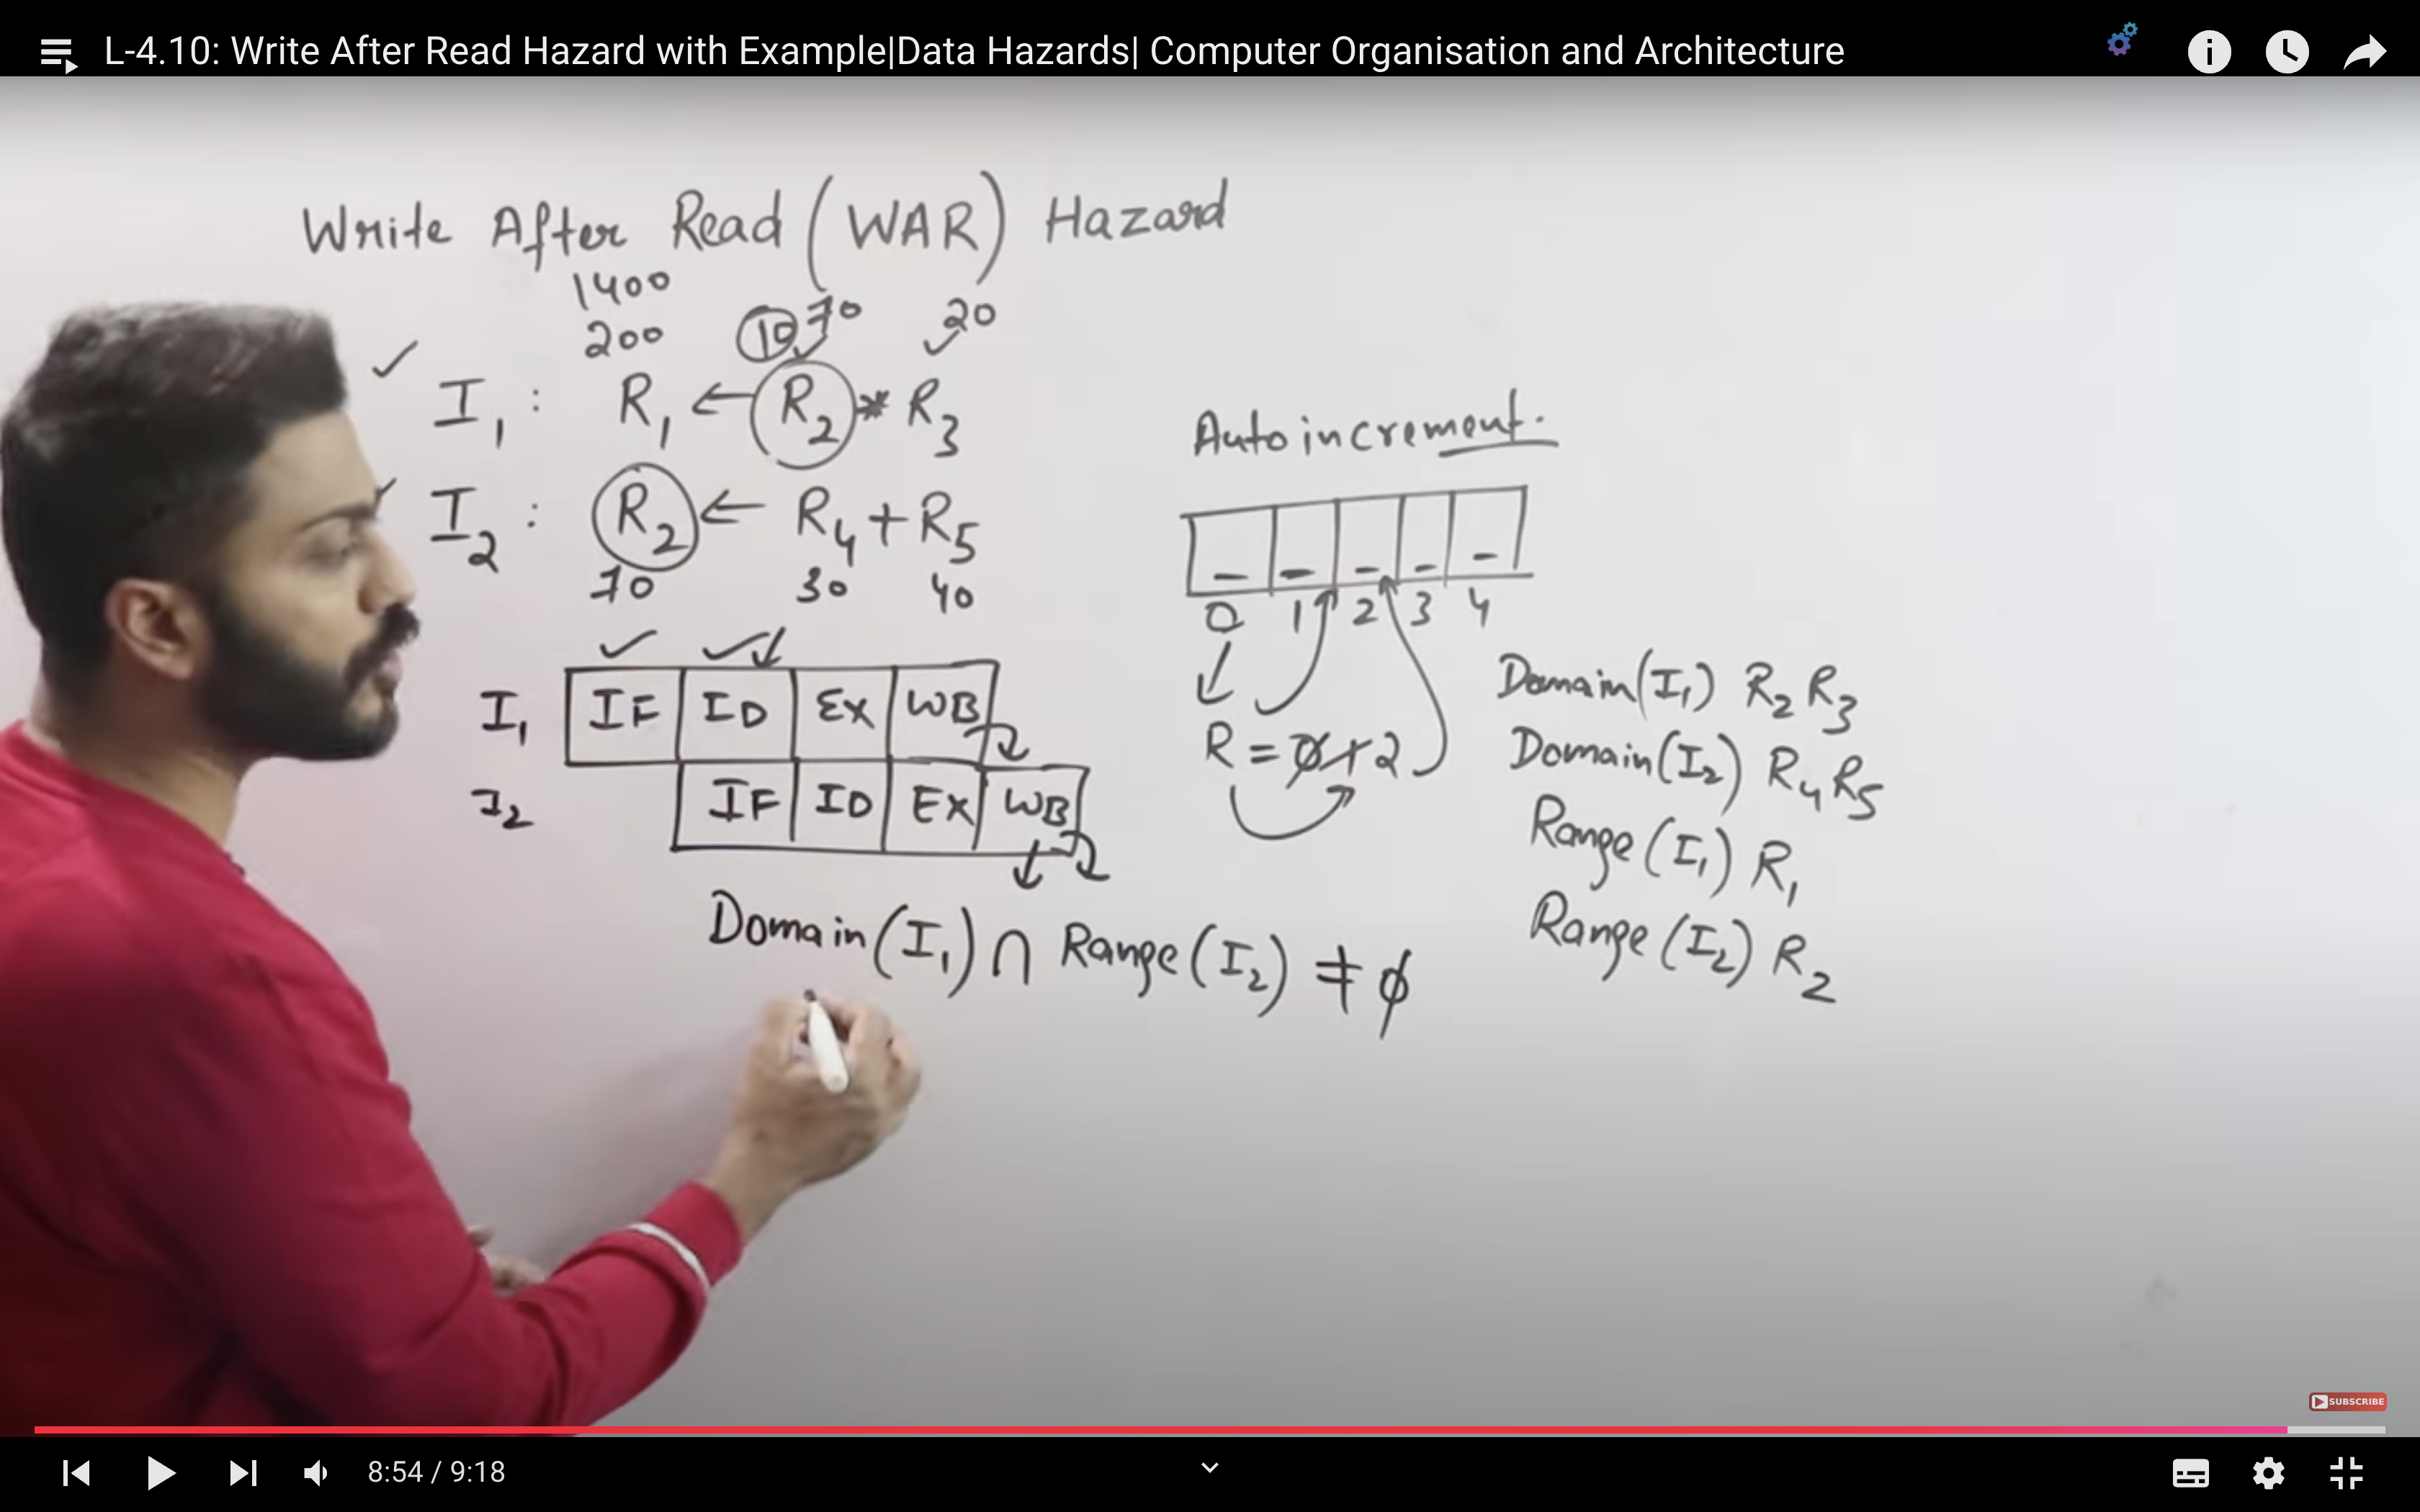 L-4.10: Write After Read Hazard with Example|Data Hazards| Computer Organisation and Architecture
Write After Read (WAR) Hazard
1400
200 10 70 20
I1 : R1 ← R2 * R3
I2 : R2 ← R4 + R5
70 30 40
I1 IF ID EX WB
I2 IF ID EX WB
Domain (I1) ∩ Range (I2) ≠ ϕ
Auto increment.
0 1 2 3 4
R = 0 1 2
Domain (I1) R2 R3
Domain (I2) R4 R5
Range (I1) R1
Range (I2) R2
SUBSCRIBE
8:54 / 9:18